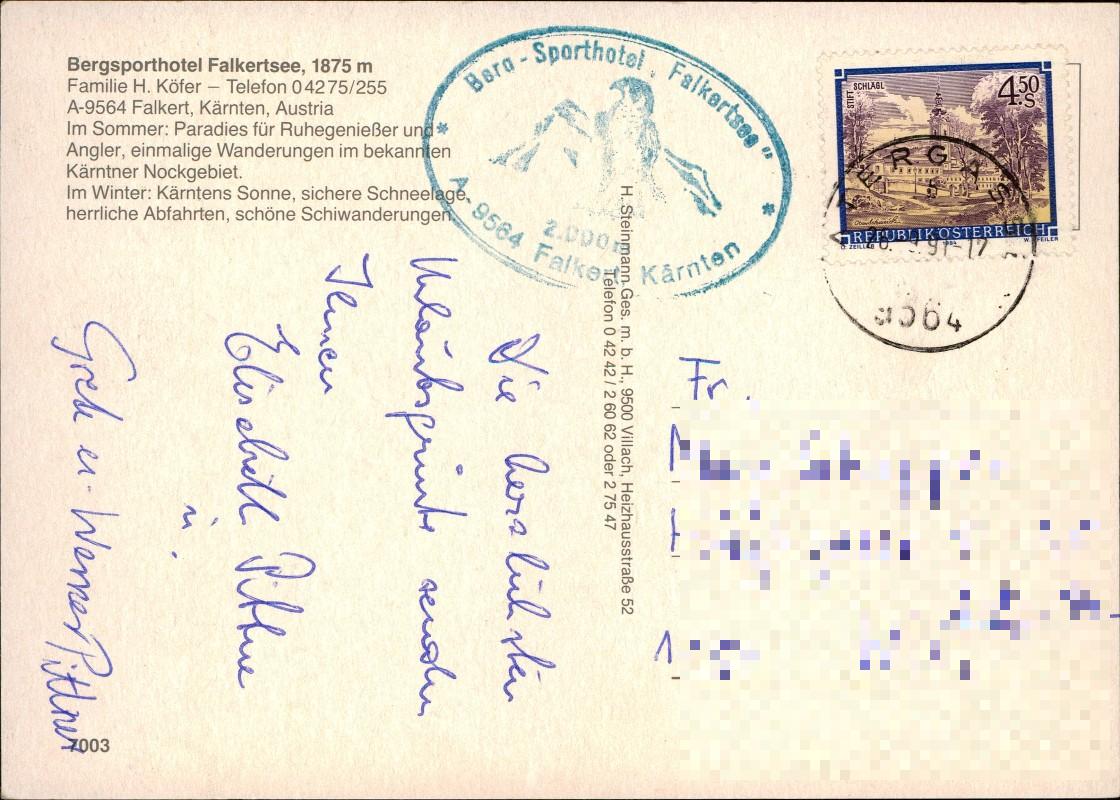 Bergsporthotel Falkertsee, 1875 m
Familie H. Köfer – Telefon 04275/255
A-9564 Falkert, Kärnten, Austria
Im Sommer: Paradies für Ruhegenießer und
Angler, einmalige Wanderungen im bekannten
Kärntner Nockgebiet.
Im Winter: Kärntens Sonne, sichere Schneelage
herrliche Abfahrten, schöne Schiwanderungen.
Berg-Sporthotel „Falkertsee"
* A-9564 Falkert, Kärnten *
2.000m
STIFT SCHLÄGL
4.50 S
REPUBLIK ÖSTERREICH
1984
W. PFEILER
9564
H. Steinmann Ges. m. b. H., 9500 Villach, Heizhausstraße 52
Telefon 0 42 42 / 2 60 62 oder 2 75 47
Die herzlichsten
Urlaubsgrüße senden
Ihnen
Elisabeth Pittner
u.
Werner Pittner
Fr.
7003